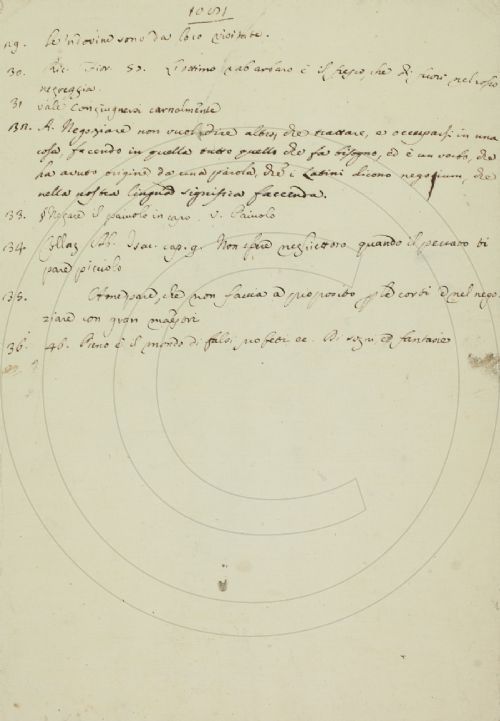 29. le indovine sono da loro
30. Ric. Fior. 50. L'ottimo rabarbaro è il fresco, che di fuori nel rosso
negreggia.
31 vale Congiugnersi carnalmente
A. Negoziare non vuol dire altro, che trattare, e occuparsi in una
cosa, facendo in quella tutto quello che fa bisogno, ed è un verbo, che
ha avuto origine da una parola, che i Latini dicono negotium, che
nella nostra lingua significa faccenda.
33. il paiuolo in capo. v. Paiuolo
34. Collaz. Ab. Isac. cap. 9. Non essere quando il peccato ti
pare piccolo
35. che non faccia a proposito nel nego
ziare con gran maestri
36. 46. Pieno è il mondo di falsi profeti ec. Di sogni ed fantasie